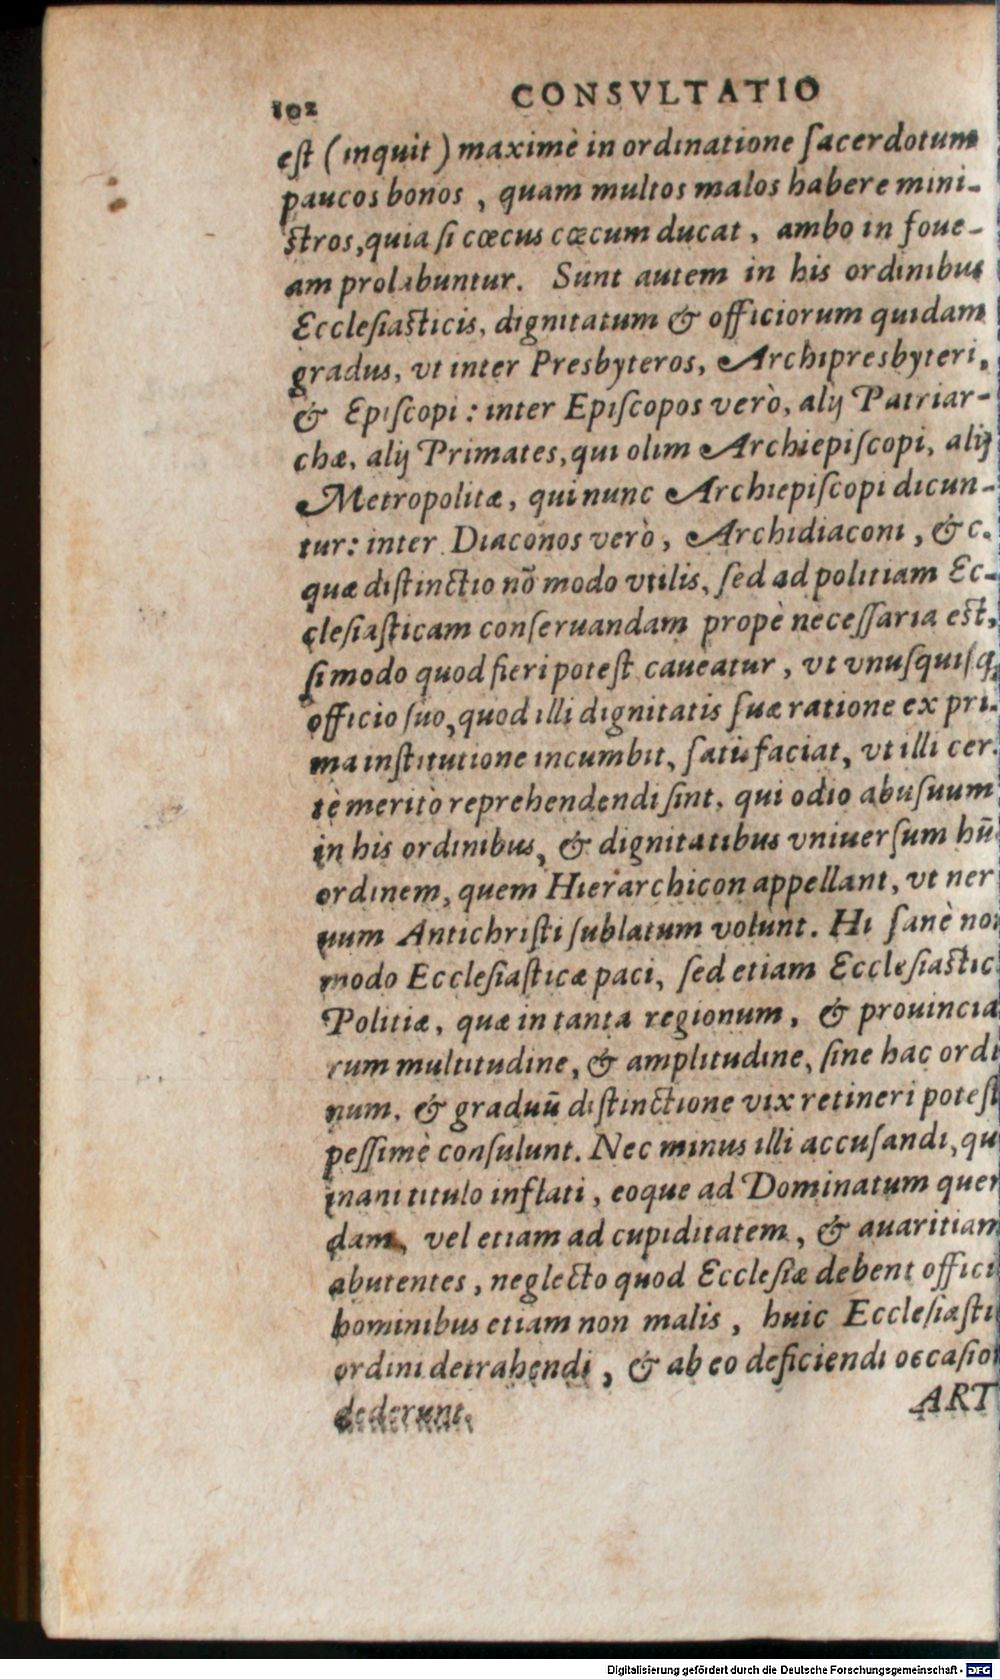 102 CONSVLTATIO
est (inquit) maximè in ordinatione sacerdotum
paucos bonos, quam multos malos habere mini-
stros, quia si cœcus cœcum ducat, ambo in foue-
am prolabuntur. Sunt autem in his ordinibus
Ecclesiasticis, dignitatum & officiorum quidam
gradus, vt inter Presbyteros, Archipresbyteri,
& Episcopi: inter Episcopos verò, alij Patriar-
chæ, alij Primates, qui olim Archiepiscopi, alij
Metropolitæ, qui nunc Archiepiscopi dicun-
tur: inter Diaconos verò, Archidiaconi, &c.
quæ distinctio nō modo vtilis, sed ad politiam Ec-
clesiasticam conseruandam propè necessaria est,
si modo quod fieri potest caueatur, vt vnusquisq;
officio suo, quod illi dignitatis suæ ratione ex pri-
ma institutione incumbit, satisfaciat, vt illi cer-
tè meritò reprehendendi sint, qui odio abusuum
in his ordinibus, & dignitatibus vniuersum hū
ordinem, quem Hierarchicon appellant, vt ner
uum Antichristi sublatum volunt. Hi sanè non
modo Ecclesiasticæ paci, sed etiam Ecclesiastic
Politiæ, quæ in tanta regionum, & prouincia
rum multitudine, & amplitudine, sine hac ordi
num, & graduū distinctione vix retineri potest
pessimè consulunt. Nec minus illi accusandi, qu
inani titulo inflati, eoque ad Dominatum quen
dam, vel etiam ad cupiditatem, & auaritiam
abutentes, neglecto quod Ecclesiæ debent offici
hominibus etiam non malis, huic Ecclesiasti
ordini detrahendi, & ab eo deficiendi occasion
dederunt.
ART
Digitalisierung gefördert durch die Deutsche Forschungsgemeinschaft - DFG